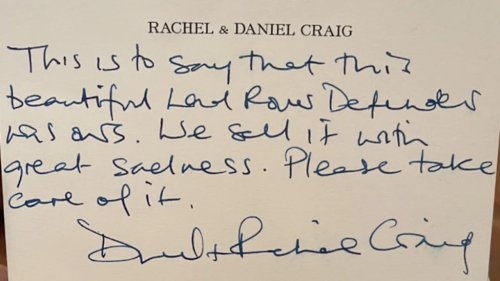 RACHEL & DANIEL CRAIG
This is to say that this
beautiful Land Rover Defender
was ours. We sell it with
great sadness. Please take
care of it.
Daniel + Rachel Craig